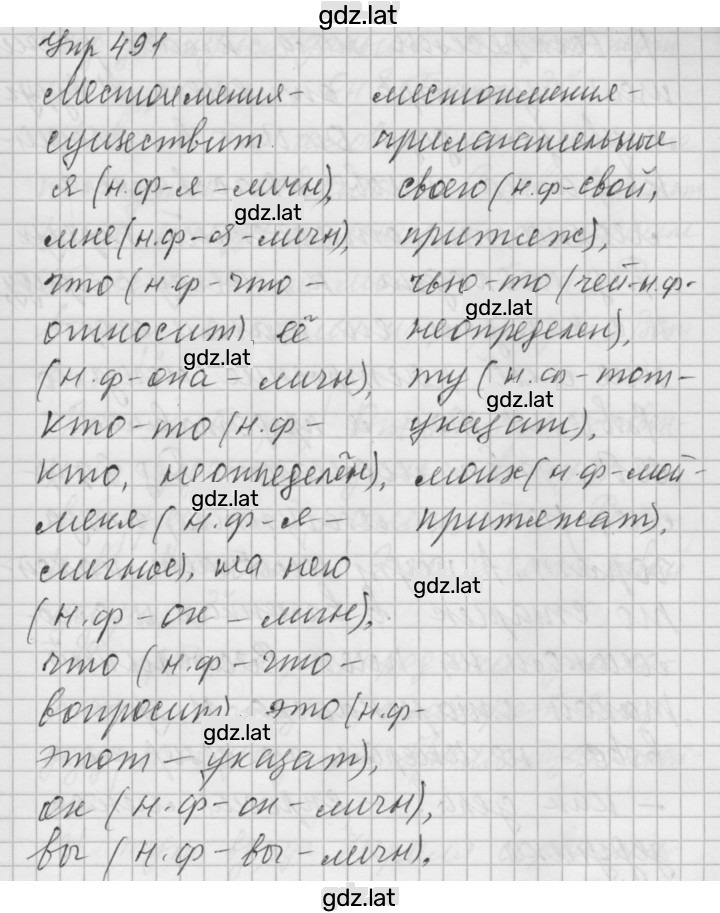 gdz.lat
Упр 491
Местоимения-
существит.
я (н.ф-я-личн),
gdz.lat
мне (н.ф-я-личн),
что (н.ф-что-
относит), её
gdz.lat
(н.ф-она-личн),
кто-то (н.ф-
кто, неопределён),
gdz.lat
меня (н.ф-я-
личное), на него
(н.ф-он-личн),
что (н.ф-что-
вопросит), это (н.ф-
gdz.lat
этот-указат),
он (н.ф-он-личн),
вы (н.ф-вы-личн).
местоимения-
прилагательные
своего (н.ф-свой,
притяж),
чью-то (чей-н.ф-
gdz.lat
неопределен),
ту (н.ф-тот-
gdz.lat
указат),
моих (н.ф-мой-
притяжат),
gdz.lat
gdz.lat